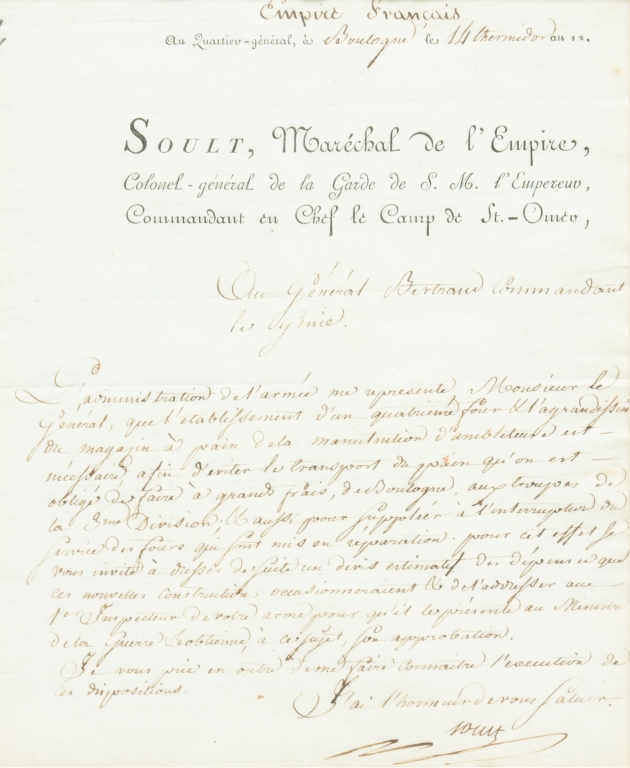 Empire Français
Au Quartier-général, à Boulogne le 14 thermidor an 12.
SOULT, Maréchal de l'Empire,
Colonel-général de la Garde de S. M. l'Empereur,
Commandant en Chef le Camp de St.-Omer,
Au Général Bertrand Commandant
le Génie.
L'administration de l'armée me représente, Monsieur le
Général, que l'etablissement d'un quatrieme four & l'agrandissem
du magazin à pain dela manutention d'ambleteuse est
nécessaire, afin d'eviter le transport du pain qu'on est
obligé de faire à grands frais, de Boulogne, aux troupes de
la 3me Division; & aussi pour suppléer à l'interruption du
service des fours qui sont mis en réparation. pour cet effet je
vous invite à dresser de suite un devis estimatif des dépenses que
ces nouvelles constructions occasionneraient & de l'addresser au
1er Inspecteur de votre arme pour qu'il le présente au Ministre
dela Guerre & obtienne, à ce sujet, son approbation.
Je vous prie en outre de me faire connaitre l'execution de
ces dispositions.
J'ai l'honneur de vous saluer.
Soult